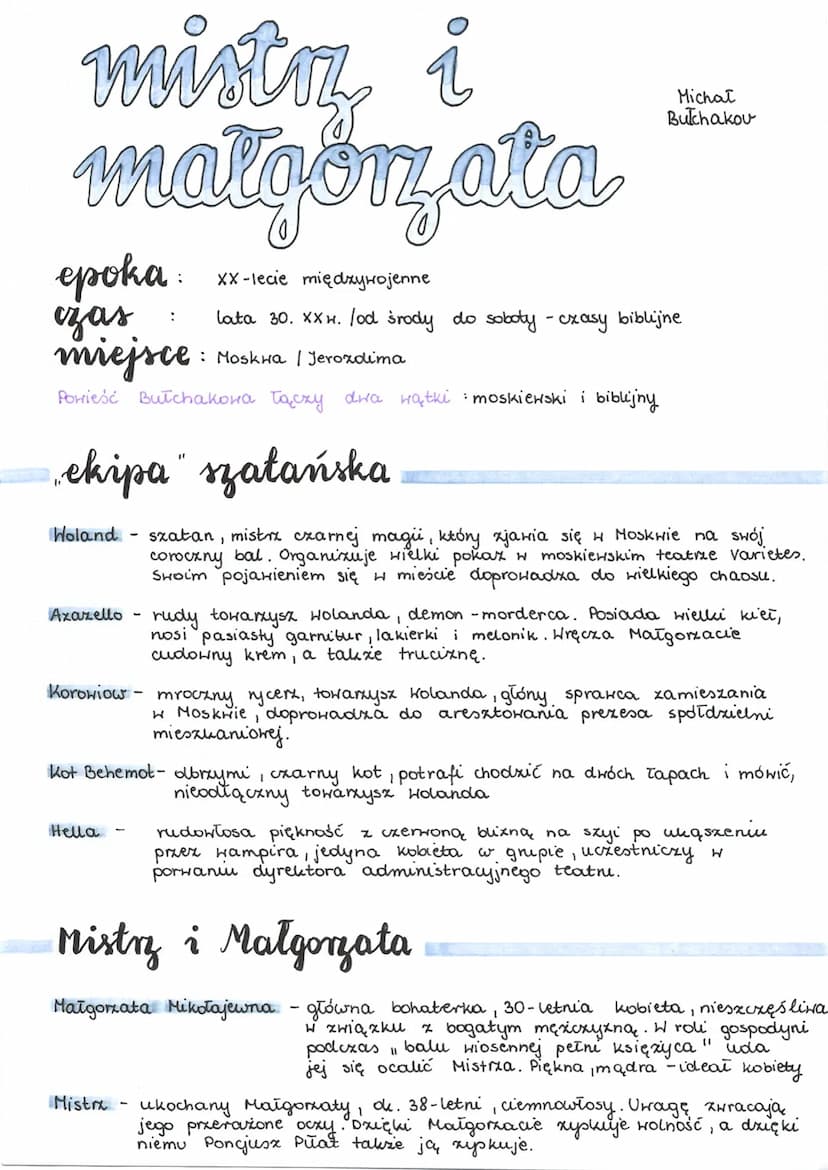 mistrz i
małgorzata
Michał
Bułhakow
epoka : XX-lecie międzywojenne
czas : lata 30. XXw. / od środy do soboty - czasy biblijne
miejsce : Moskwa / Jerozolima
Powieść Bułhakowa łączy dwa wątki : moskiewski i biblijny
„ekipa" szatańska
Woland - szatan, mistrz czarnej magii, który zjawia się w Moskwie na swój
coroczny bal. Organizuje wielki pokaz w moskiewskim teatrze Varietes.
Swoim pojawieniem się w mieście doprowadza do wielkiego chaosu.
Azazello - rudy towarzysz Wolanda, demon-morderca. Posiada wielki kieł,
nosi pasiasty garnitur, lakierki i melonik. Wręcza Małgorzacie
cudowny krem, a także truciznę.
Korowiow - mroczny rycerz, towarzysz Wolanda, głóny sprawca zamieszania
w Moskwie, doprowadza do aresztowania prezesa spółdzielni
mieszkaniowej.
Kot Behemot - olbrzymi, czarny kot, potrafi chodzić na dwóch łapach i mówić,
nieodłączny towarzysz Wolanda
Hella - rudowłosa piękność z czerwoną blizną na szyi po ukąszeniu
przez wampira, jedyna kobieta w grupie, uczestniczy w
porwaniu dyrektora administracyjnego teatru.
Mistrz i Małgorzata
Małgorzata Mikołajewna - główna bohaterka, 30-letnia kobieta, nieszczęśliwa
w związku z bogatym mężczyzną. W roli gospodyni
podczas „balu wiosennej pełni księżyca" uda
jej się ocalić Mistrza. Piękna, mądra - ideał kobiety
Mistrz - ukochany Małgorzaty, ok. 38-letni, ciemnowłosy. Uwagę zwracają
jego przerażone oczy. Dzięki Małgorzacie zyskuje wolność, a dzięki
niemu Poncjusz Piłat także ją zyskuje.